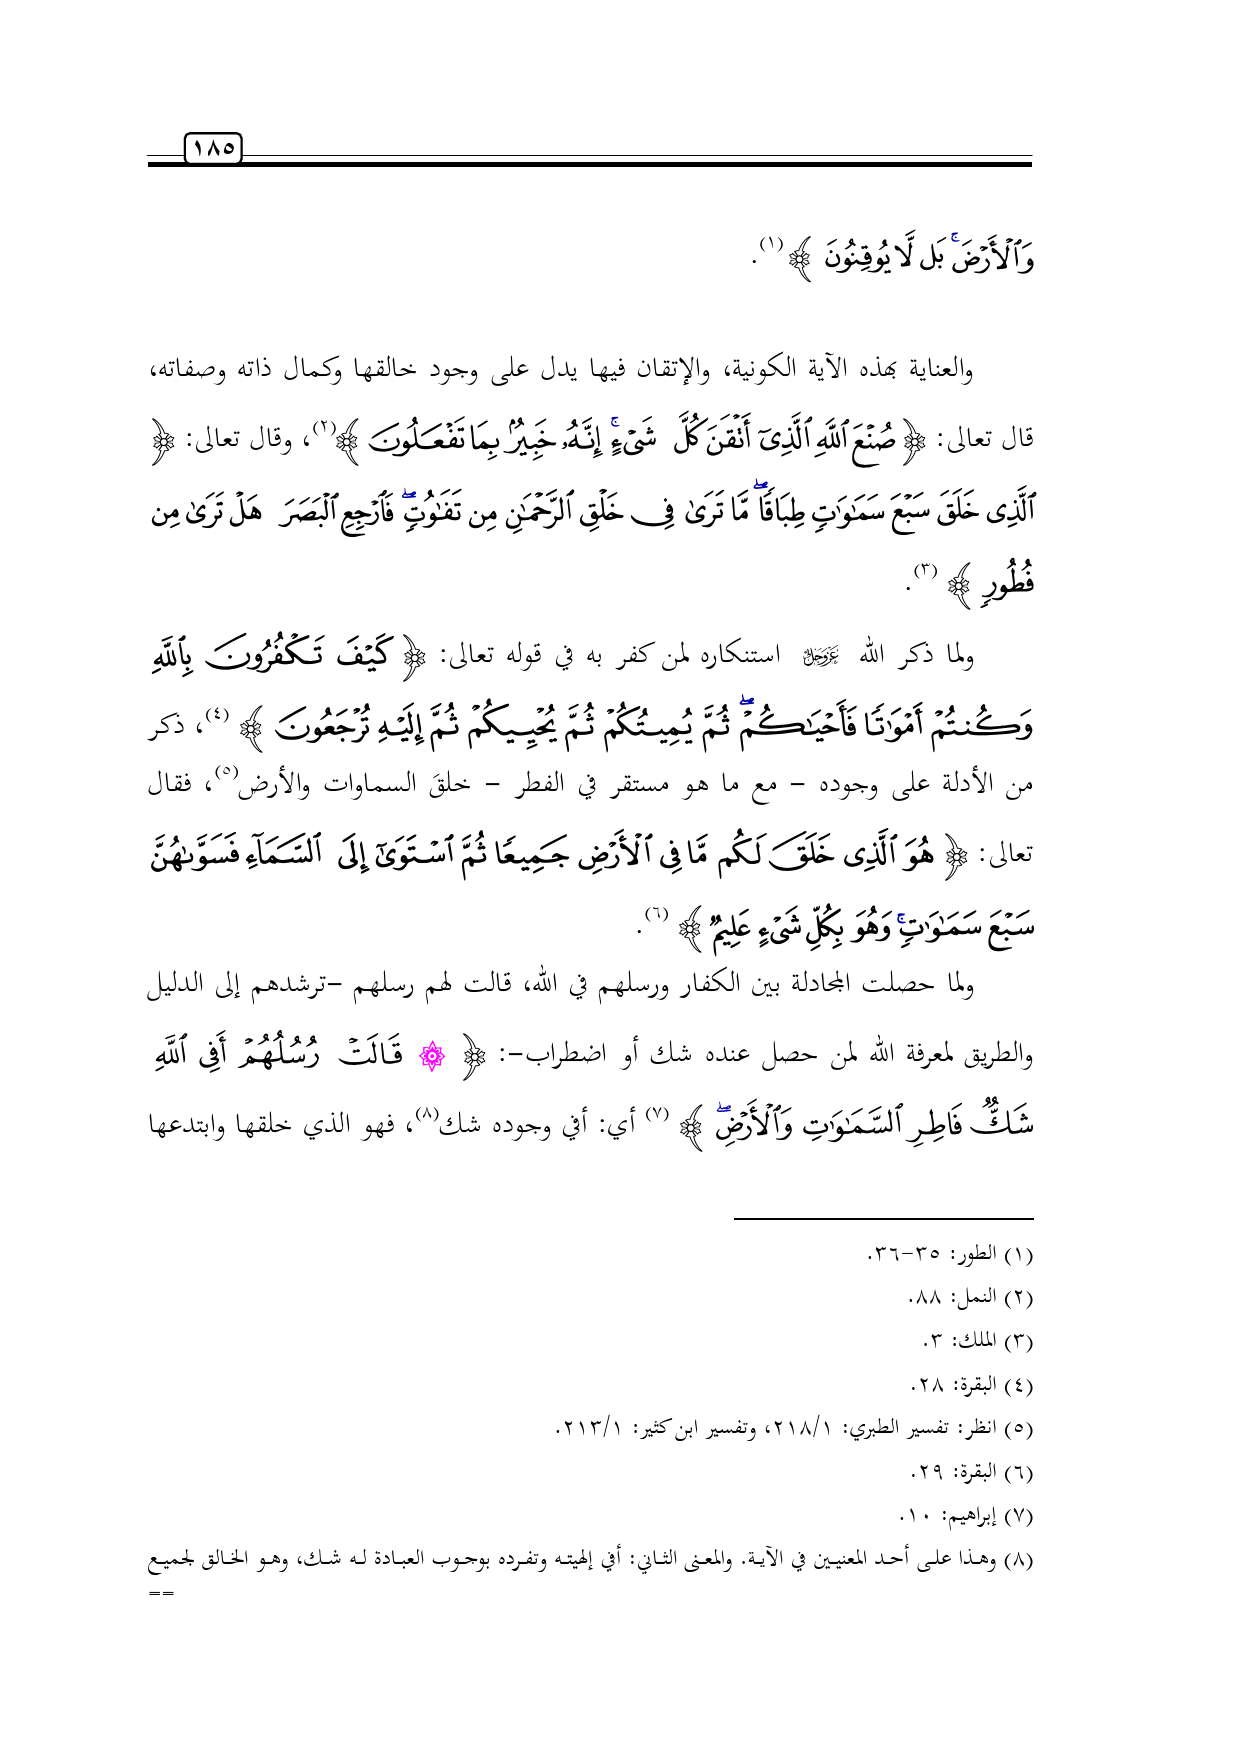 ١٨٥
وَٱلۡأَرۡضَۚ بَل لَّا يُوقِنُونَ ﴾(١).
والعناية بهذه الآية الكونية، والإتقان فيها يدل على وجود خالقها وكمال ذاته وصفاته،
قال تعالى: ﴿ صُنۡعَ ٱللَّهِ ٱلَّذِىٓ أَتۡقَنَ كُلَّ شَىۡءٍۚ إِنَّهُۥ خَبِيرُۢ بِمَا تَفۡعَلُونَ ﴾(٢)، وقال تعالى: ﴿
ٱلَّذِى خَلَقَ سَبۡعَ سَمَٰوَٰتٖ طِبَاقٗاۖ مَّا تَرَىٰ فِى خَلۡقِ ٱلرَّحۡمَٰنِ مِن تَفَٰوُتٖۖ فَٱرۡجِعِ ٱلۡبَصَرَ هَلۡ تَرَىٰ مِن
فُطُورٖ ﴾(٣).
ولما ذكر الله عَزَّوَجَلَّ استنكاره لمن كفر به في قوله تعالى: ﴿ كَيۡفَ تَكۡفُرُونَ بِٱللَّهِ
وَكُنتُمۡ أَمۡوَٰتٗا فَأَحۡيَٰكُمۡۖ ثُمَّ يُمِيتُكُمۡ ثُمَّ يُحۡيِيكُمۡ ثُمَّ إِلَيۡهِ تُرۡجَعُونَ ﴾(٤)، ذكر
من الأدلة على وجوده – مع ما هو مستقر في الفطر – خلقَ السماوات والأرض(٥)، فقال
تعالى: ﴿ هُوَ ٱلَّذِى خَلَقَ لَكُم مَّا فِى ٱلۡأَرۡضِ جَمِيعٗا ثُمَّ ٱسۡتَوَىٰٓ إِلَى ٱلسَّمَآءِ فَسَوَّىٰهُنَّ
سَبۡعَ سَمَٰوَٰتٖۚ وَهُوَ بِكُلِّ شَىۡءٍ عَلِيمٞ ﴾(٦).
ولما حصلت المجادلة بين الكفار ورسلهم في الله، قالت لهم رسلهم –ترشدهم إلى الدليل
والطريق لمعرفة الله لمن حصل عنده شك أو اضطراب–: ﴿ ۞ قَالَتۡ رُسُلُهُمۡ أَفِى ٱللَّهِ
شَكّٞ فَاطِرِ ٱلسَّمَٰوَٰتِ وَٱلۡأَرۡضِۖ ﴾(٧) أي: أفي وجوده شك(٨)، فهو الذي خلقها وابتدعها
(١) الطور: ٣٥-٣٦.
(٢) النمل: ٨٨.
(٣) الملك: ٣.
(٤) البقرة: ٢٨.
(٥) انظر: تفسير الطبري: ٢١٨/١، وتفسير ابن كثير: ٢١٣/١.
(٦) البقرة: ٢٩.
(٧) إبراهيم: ١٠.
(٨) وهذا على أحد المعنيين في الآية. والمعنى الثاني: أفي إلهيته وتفرده بوجوب العبادة له شك، وهو الخالق لجميع
==